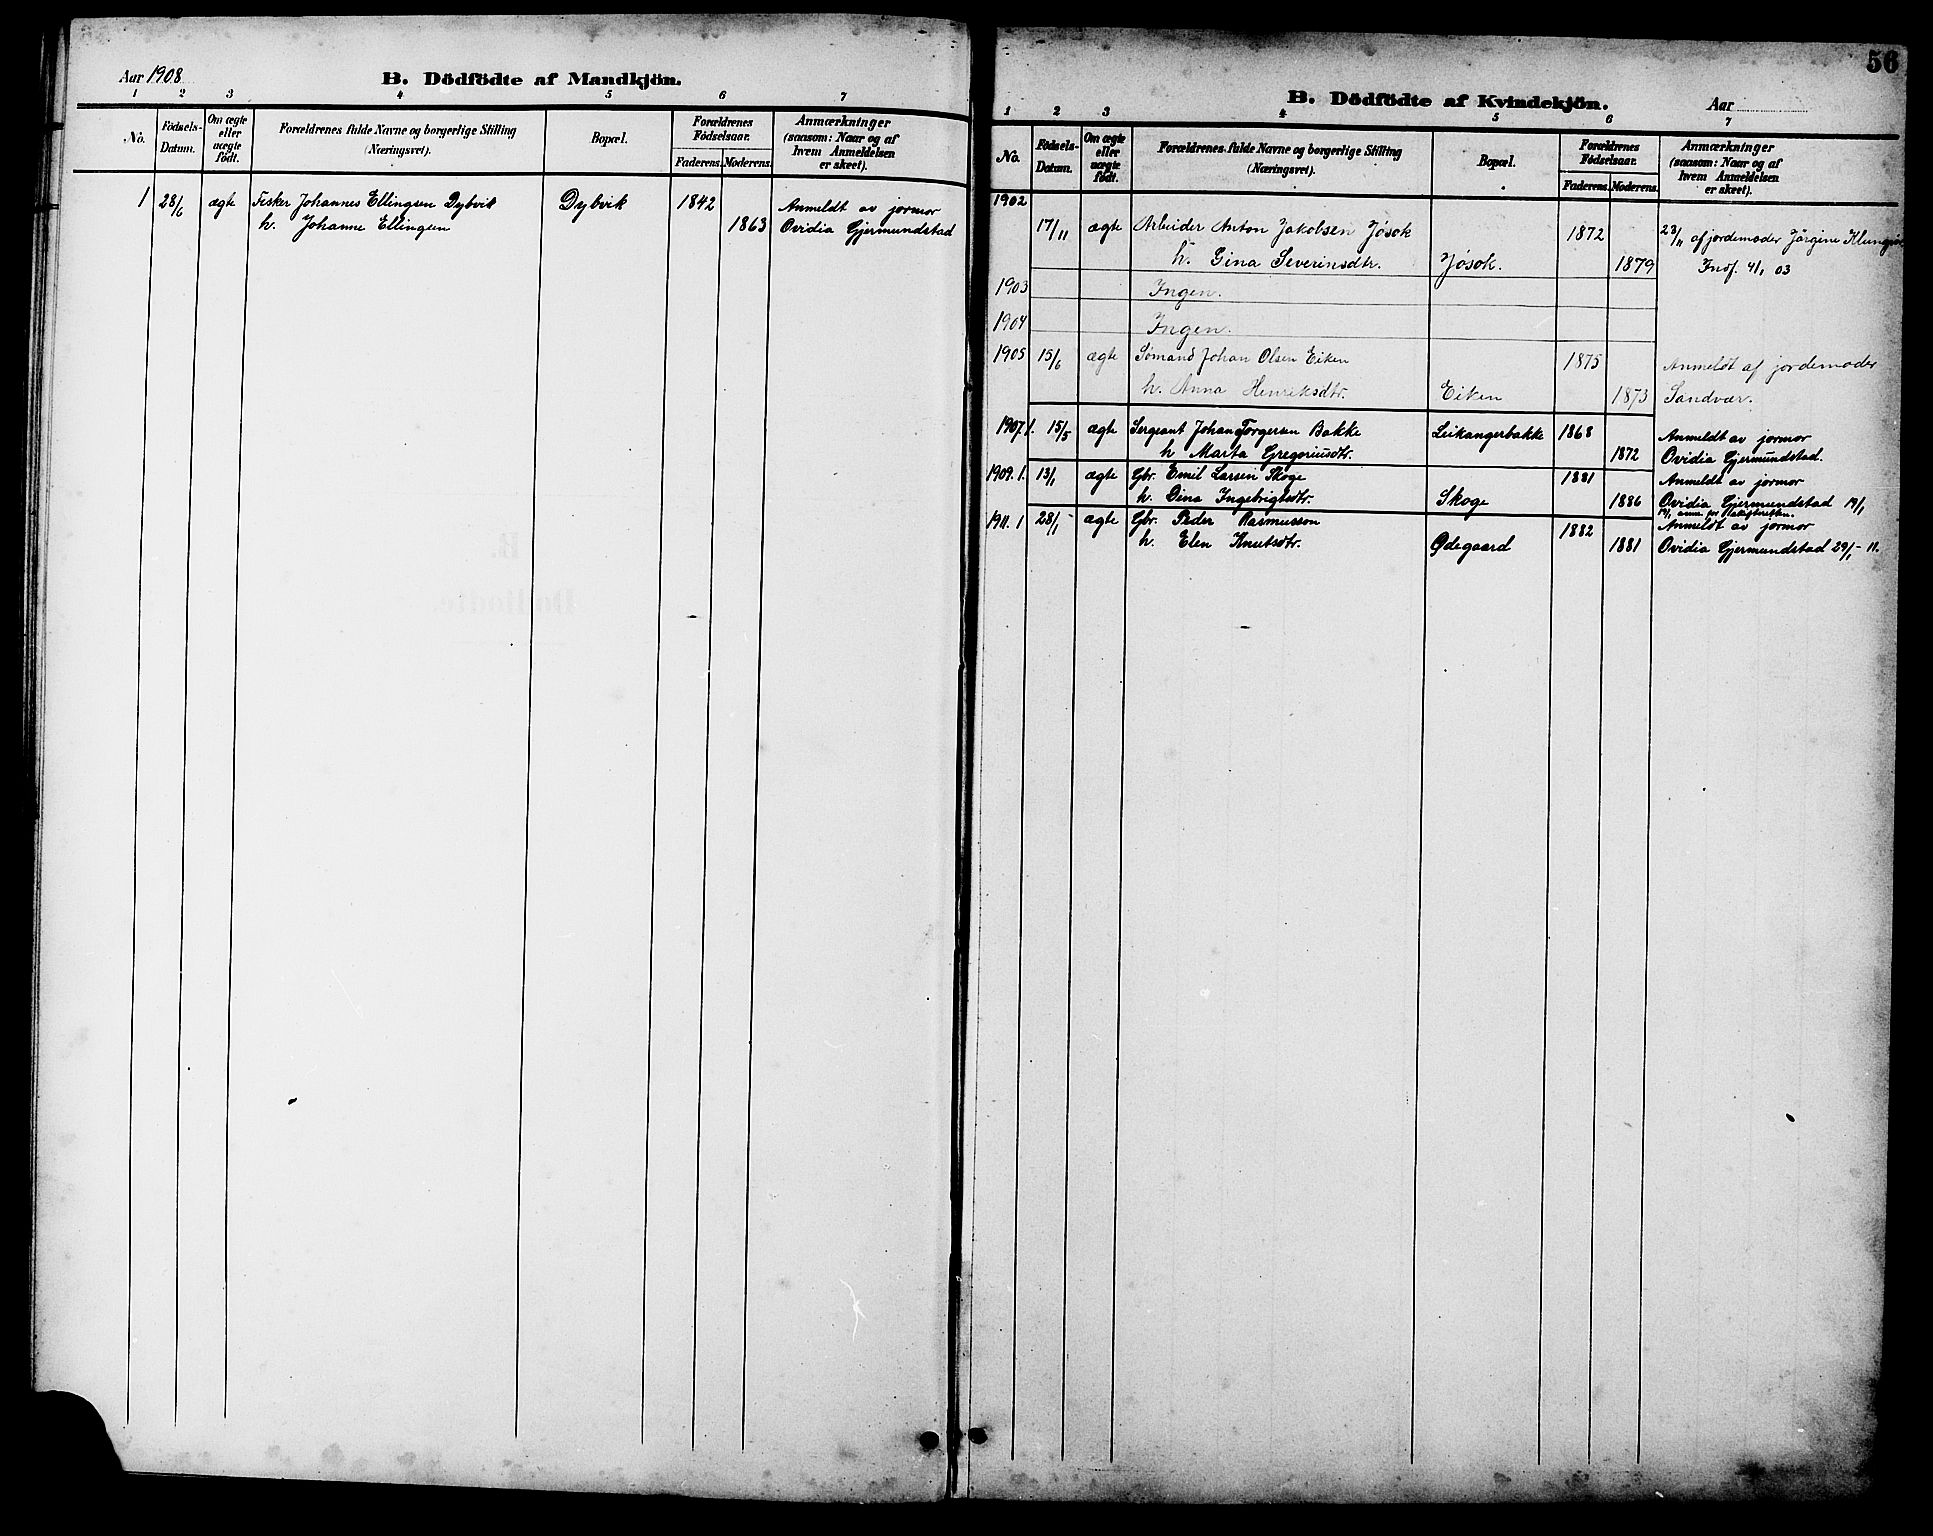 Aar 1908
B. Dödfödte af Mandkjön.
1 2 3 4 5 6 7
No. Födsels-Datum. Om ægte eller uægte födt. Forældrenes fulde Navne og borgerlige Stilling (Næringsvei). Bopæl. Forældrenes Födselsaar. Faderens. Moderens. Anmærkninger (saasom: Naar og af hvem Anmeldelsen er skeet).
1 28/6 ægte Fisker Johannes Ellingsen Dybvik Dybvik 1842 Anmeldt av jormor
h. Johanne Ellingsen 1863 Ovidia Gjermundstad
56
B. Dödfödte af Kvindekjön.
Aar
1 2 3 4 5 6 7
No. Födsels-Datum. Om ægte eller uægte födt. Forældrenes fulde Navne og borgerlige Stilling (Næringsvei). Bopæl. Forældrenes Födselsaar. Faderens. Moderens. Anmærkninger (saasom: Naar og af hvem Anmeldelsen er skeet).
1902
17/11 ægte Arbeider Anton Jakobsen Jøsok 1872 23/11 af jordemoder Jørgine
h. Gina Severinsdtr. Jøsok. 1879 Indf. 4/1 03
1903 Ingen.
1904 Ingen.
1905 15/6 ægte Sømand Johan Olsen Eiken 1875 Anmeldt af jordemoder
h. Anna Henriksdtr. Eiken 1873 Sandvær.
1907 1. 15/5 ægte Sergeant Johan Torgersen Bakke Leikangerbakke 1868 Anmeldt av jormor
h Marta Gregoriusdtr. 1872 Ovidia Gjermundstad.
1909. 1. 13/1 ægte Gbr. Emil Larsen Skoge 1881 Anmeldt av jormor
h. Gina Ingebrigtsdtr. Skoge 1886 Ovidia Gjermundstad 19/1
1911. 1 28/1 - ægte Gbr. Peder Rasmussen 1882 Anmeldt av jormor
h. Elen Knutsdtr. Ødegaard 1881 Ovidia Gjermundstad 29/1 - 11.